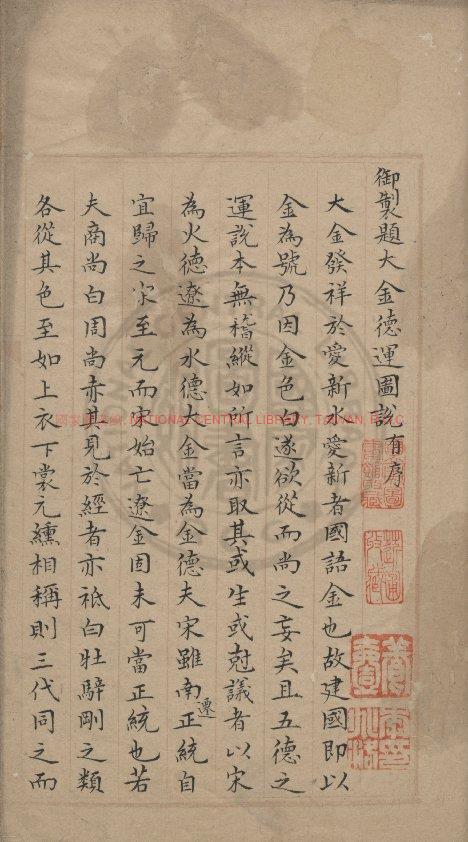 御製題大金德運圖說有序
大金發祥於愛新水愛新者國語金也故建國即以
金為號乃因金色白遂欲從而尚之妄矣且五德之
運說本無稽縱如所言亦取其或生或尅議者以宋
為火德遼為水德大金當為金德夫宋雖南遷正統自
宜歸之宋至元而宋始亡遼金固未可當正統也若
夫商尚白周尚赤其見於經者亦祇白牡騂剛之類
各從其色至如上衣下裳元纁相稱則三代同之而
NATIONAL CENTRAL LIBRARY, TAIWAN, R.O.C